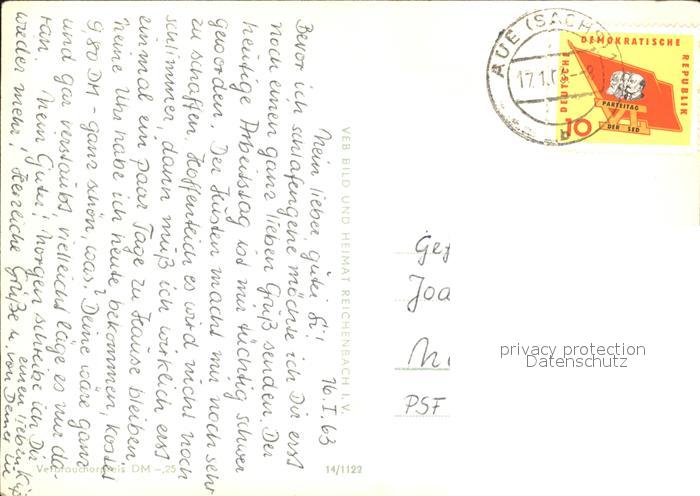 16.I.63
Mein lieber, guter Gi!
Bevor ich schlafengehe möchte ich Dir erst
noch einen ganz lieben Gruß senden. Der
heutige Arbeitstag ist mir tüchtig schwer
geworden. Der Husten macht mir noch sehr
zu schaffen. Hoffentlich es wird nicht noch
schlimmer, dann muß ich wirklich erst
einmal ein paar Tage zu Hause bleiben.
Meine Uhr habe ich heute bekommen, kostet
9,80 DM - ganz schön, was? Deine wäre ganz
und gar verstaubt, vielleicht läge es nur da-
ran. Mein Guter! Morgen schreibe ich Dir
wieder mehr! Herzliche Grüße u. einen lieben
von Deiner
VEB BILD UND HEIMAT REICHENBACH I. V.
Verbraucherpreis DM -,25
14/1122
AUE (SACHS)
17.1.
DEUTSCHE
DEMOKRATISCHE
REPUBLIK
PARTEITAG
VI.
DER SED
10
Joa
PSF
privacy protection
Datenschutz